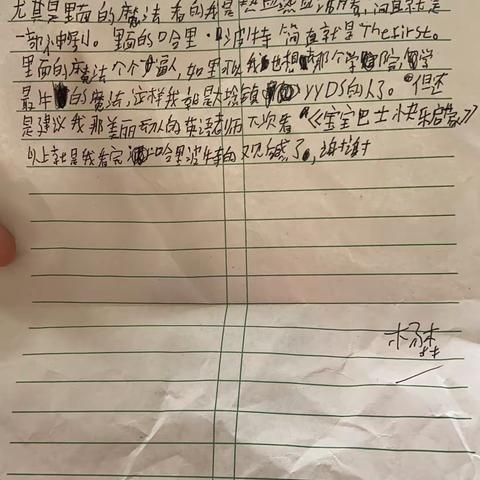 尤其是里面的魔法看的我是热血沸腾,简直就是
一部神剧。里面的哈里·波特简直就是The first。
里面的魔法个个逼人,如果可以我也想去那个学院学
最牛的魔法,这样我就是大 YYDS的人S。但还
是建议我那美丽动人的英语老师下次看《宝宝巴士快乐启蒙》
以上就是我看完哈里波特的观感了,谢谢
杨森